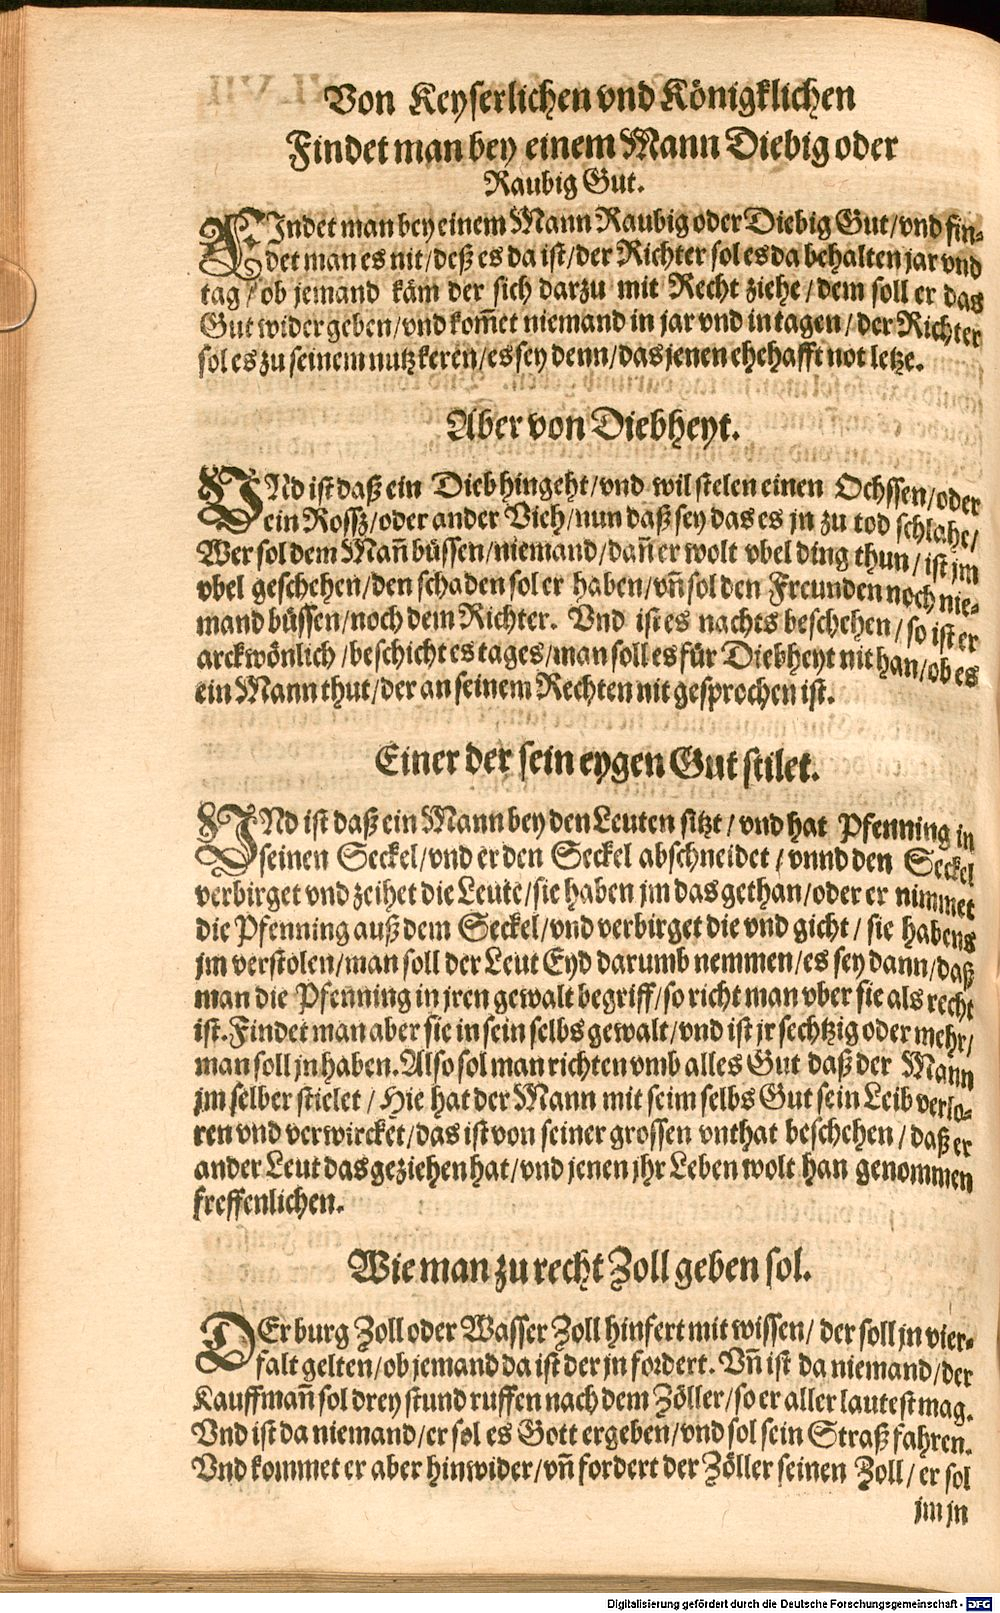 Von Keyserlichen vnd Königklichen
Findet man bey einem Mann Diebig oder
Raubig Gut.
FIndet man bey einem Mann Raubig oder Diebig Gut/vnd fin-
det man es nit/deß es da ist/der Richter sol es da behalten jar vnd
tag/ob jemand käm der sich darzu mit Recht ziehe/dem soll er das
Gut wider geben/vnd kom̃et niemand in jar vnd in tagen/der Richter
sol es zu seinem nutz keren/es sey denn/das jenen ehehafft not letze.
Aber von Diebheyt.
VNd ist daß ein Dieb hingeht/vnd wil stelen einen Ochssen/oder
ein Rossz/oder ander Vich/nun daß sey das es jn zu tod schlahe/
Wer sol dem Mañ büssen/niemand/dañ er wolt vbel ding thun/ist jm
vbel geschehen/den schaden sol er haben/vñ sol den Freunden noch nie-
mand büssen/noch dem Richter. Vnd ist es nachts beschehen/so ist er
arckwönlich/beschicht es tages/man soll es für Diebheyt nit han/ob es
ein Mann thut/der an seinem Rechten nit gesprochen ist.
Einer der sein eygen Gut stilet.
VNd ist daß ein Mann bey den Leuten sitzt/vnd hat Pfenning in
seinen Seckel/vnd er den Seckel abschneidet/vnnd den Seckel
verbirget vnd zeihet die Leute/sie haben jm das gethan/oder er nimmet
die Pfenning auß dem Seckel/vnd verbirget die vnd gicht/sie habens
jm verstolen/man soll der Leut Eyd darumb nemmen/es sey dann/daß
man die Pfenning in jren gewalt begriff/so richt man vber sie als recht
ist. Findet man aber sie in sein selbs gewalt/vnd ist jr sechtzig oder mehr/
man soll jn haben. Also sol man richten vmb alles Gut daß der Mann
jm selber stielet/Hie hat der Mann mit seim selbs Gut sein Leib verlo-
ren vnd verwircket/das ist von seiner grossen vnthat beschehen/daß er
ander Leut das geziehen hat/vnd jenen jhr Leben wolt han genommen
freffenlichen.
Wie man zu recht Zoll geben sol.
DEr burg Zoll oder Wasser Zoll hinfert mit wissen/der soll jn vier-
falt gelten/ob jemand da ist der jn fordert. Vñ ist da niemand/der
Kauffmañ sol drey stund ruffen nach dem Zöller/so er aller lautest mag.
Vnd ist da niemand/er sol es Gott ergeben/vnd sol sein Straß fahren.
Vnd kommet er aber hinwider/vñ fordert der Zöller seinen Zoll/er sol
jm jn
Digitalisierung gefördert durch die Deutsche Forschungsgemeinschaft - DFG